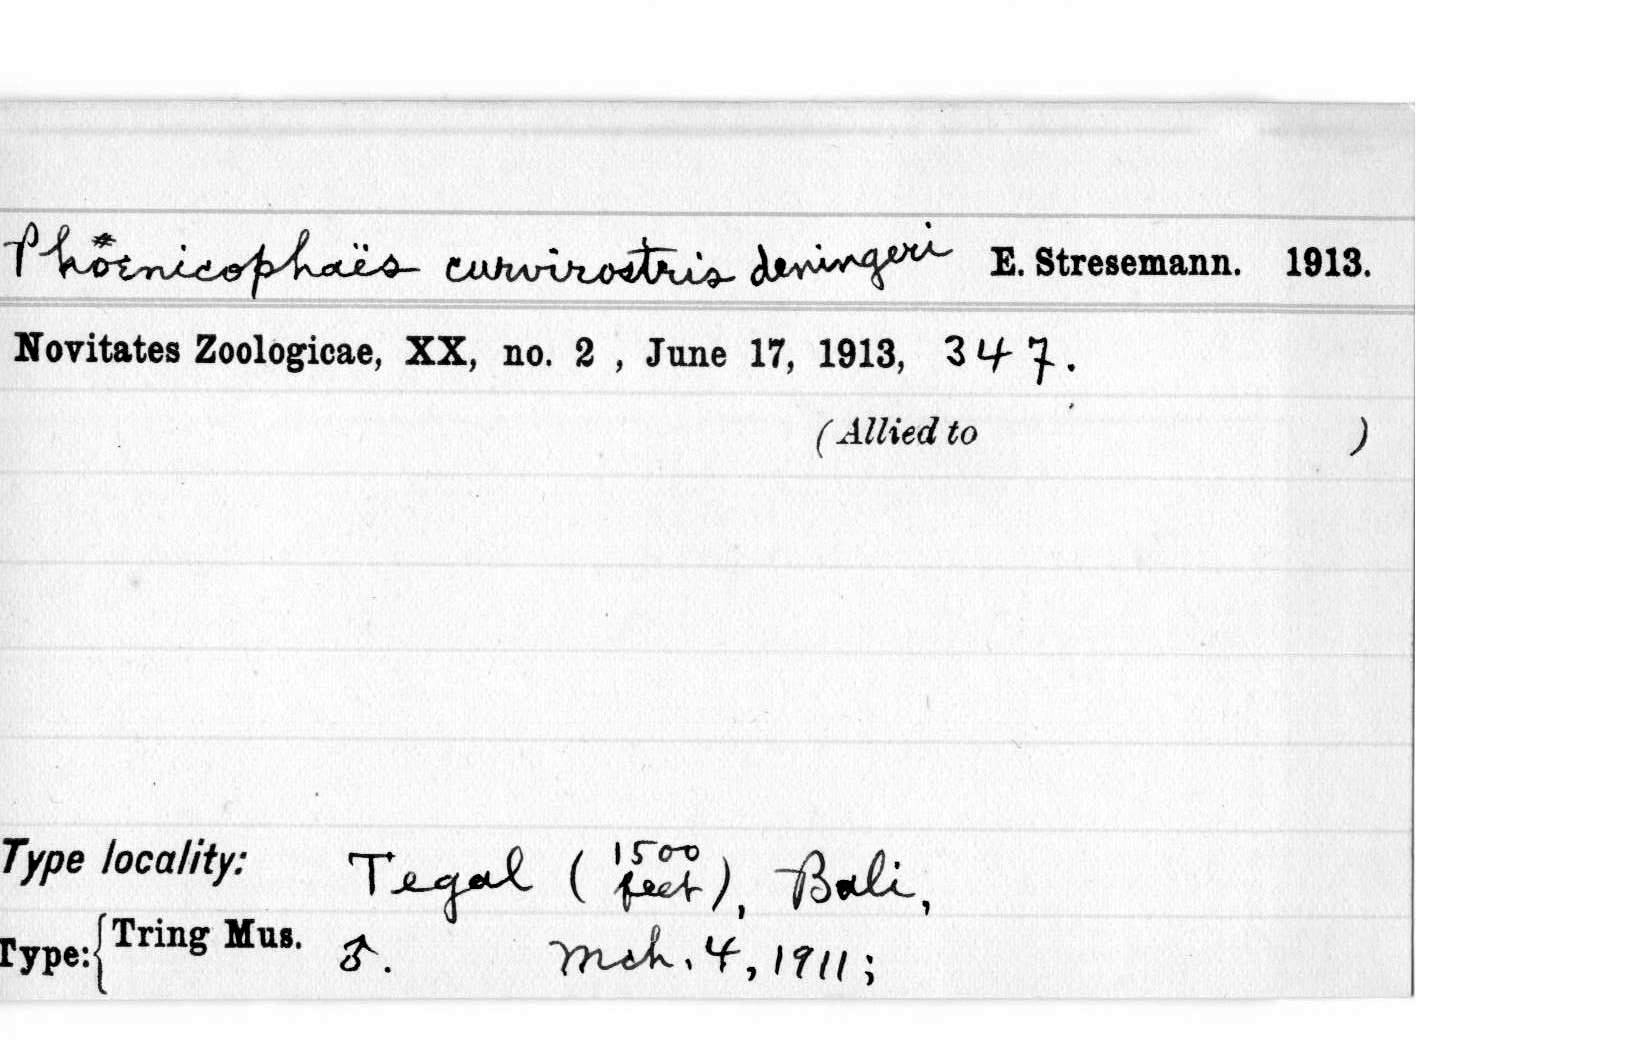 Phoenicophaës curvirostris deningeri E. Stresemann. 1913.
Novitates Zoologicae, XX, no. 2 , June 17, 1913, 347.
(Allied to )
Type locality: Tegal (1500 feet), Bali,
Type: { Tring Mus. ♂. Mch. 4, 1911;